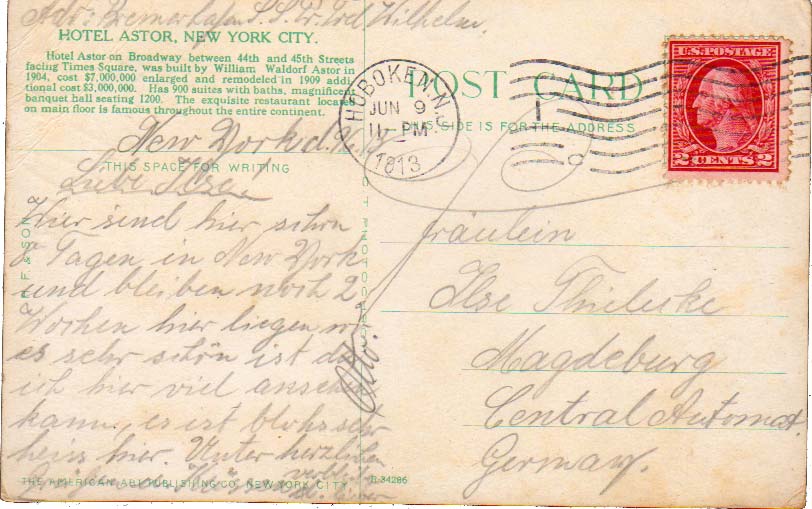 Adr: Bremerhafen S.S. Pr. Frd. Wilhelm.
HOTEL ASTOR, NEW YORK CITY.
Hotel Astor on Broadway between 44th and 45th Streets
facing Times Square, was built by William Waldorf Astor in
1904, cost $7,000,000 enlarged and remodeled in 1909 addi
tional cost $3,000,000. Has 900 suites with baths, magnificent
banquet hall seating 1200. The exquisite restaurant located
on main floor is famous throughout the entire continent.
New York d.
THIS SPACE FOR WRITING
Liebe Ilse!
Hier sind hier schon
Tagen in New York
und bleiben noch 2
Wochen hier liegen
es sehr schön ist
ich hier viel
kann, es ist blohs sehr
heiss hier. Unter herzlichen
Otto.
THE AMERICAN ART PUBLISHING CO. NEW YORK CITY
R-34286
POST CARD
THIS SIDE IS FOR THE ADDRESS
HOBOKEN, N.J.
JUN 9
11-PM
1913
U.S. POSTAGE
2 CENTS 2
Fräulein
Ilse
Magdeburg
Central Automat
Germany.